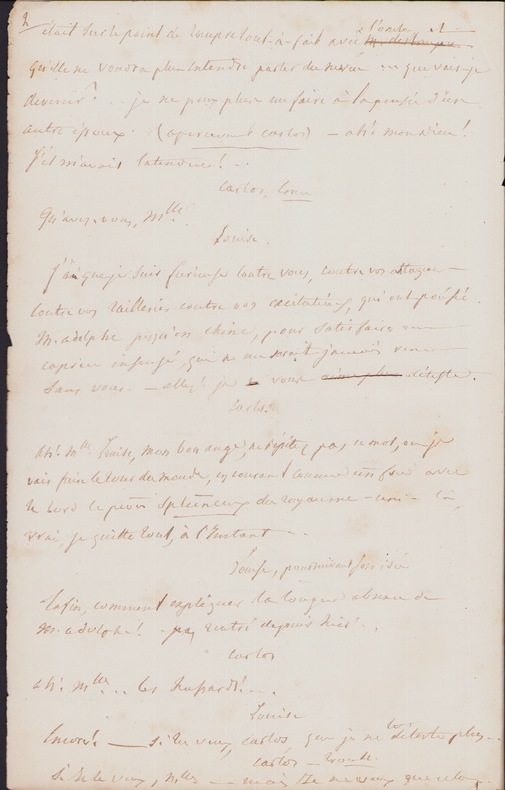 2
l'oncle et
était sur le point de rompre tout-à-fait avec M. delongpré
qu'elle ne voudra plus entendre parler du neveu — que vais-je
devenir! .. je ne peux plus me faire à la pensée d'un
autre époux. (apercevant Carlos) — ah! monsieur!
s'il m'avait entendue! ..
Carlos,
Qu'avez-vous, Mlle?
Louise.
J'ai que je suis furieuse contre vous, contre vos attaques
contre vos railleries contre vos excitations, qui ont poussé
M. adolphe jusqu'en chine, pour satisfaire un
caprice insensé, qui ne me serait jamais venu
sans vous. — allez! je vous déteste.
Carlos.
Ah! Mlle Louise, mon bon ange, ne répétez pas ce mot, ou je
vais faire le tour du monde, en courant comme un fou avec
le lord le plus spleenétique du royaume-uni —
vrai, je quitte tout, à l'instant
Louise, poursuivant son idée
Enfin, comment expliquer la longue absence de
M. adolphe! — pas rentré depuis hier! ..
Carlos
ah! Mlle ... les hussards! ...
Louise
Encore! — si tu veux, Carlos que je ne te déteste plus —
Carlos —
si je le veux, Mlle — mais je ne veux que cela —